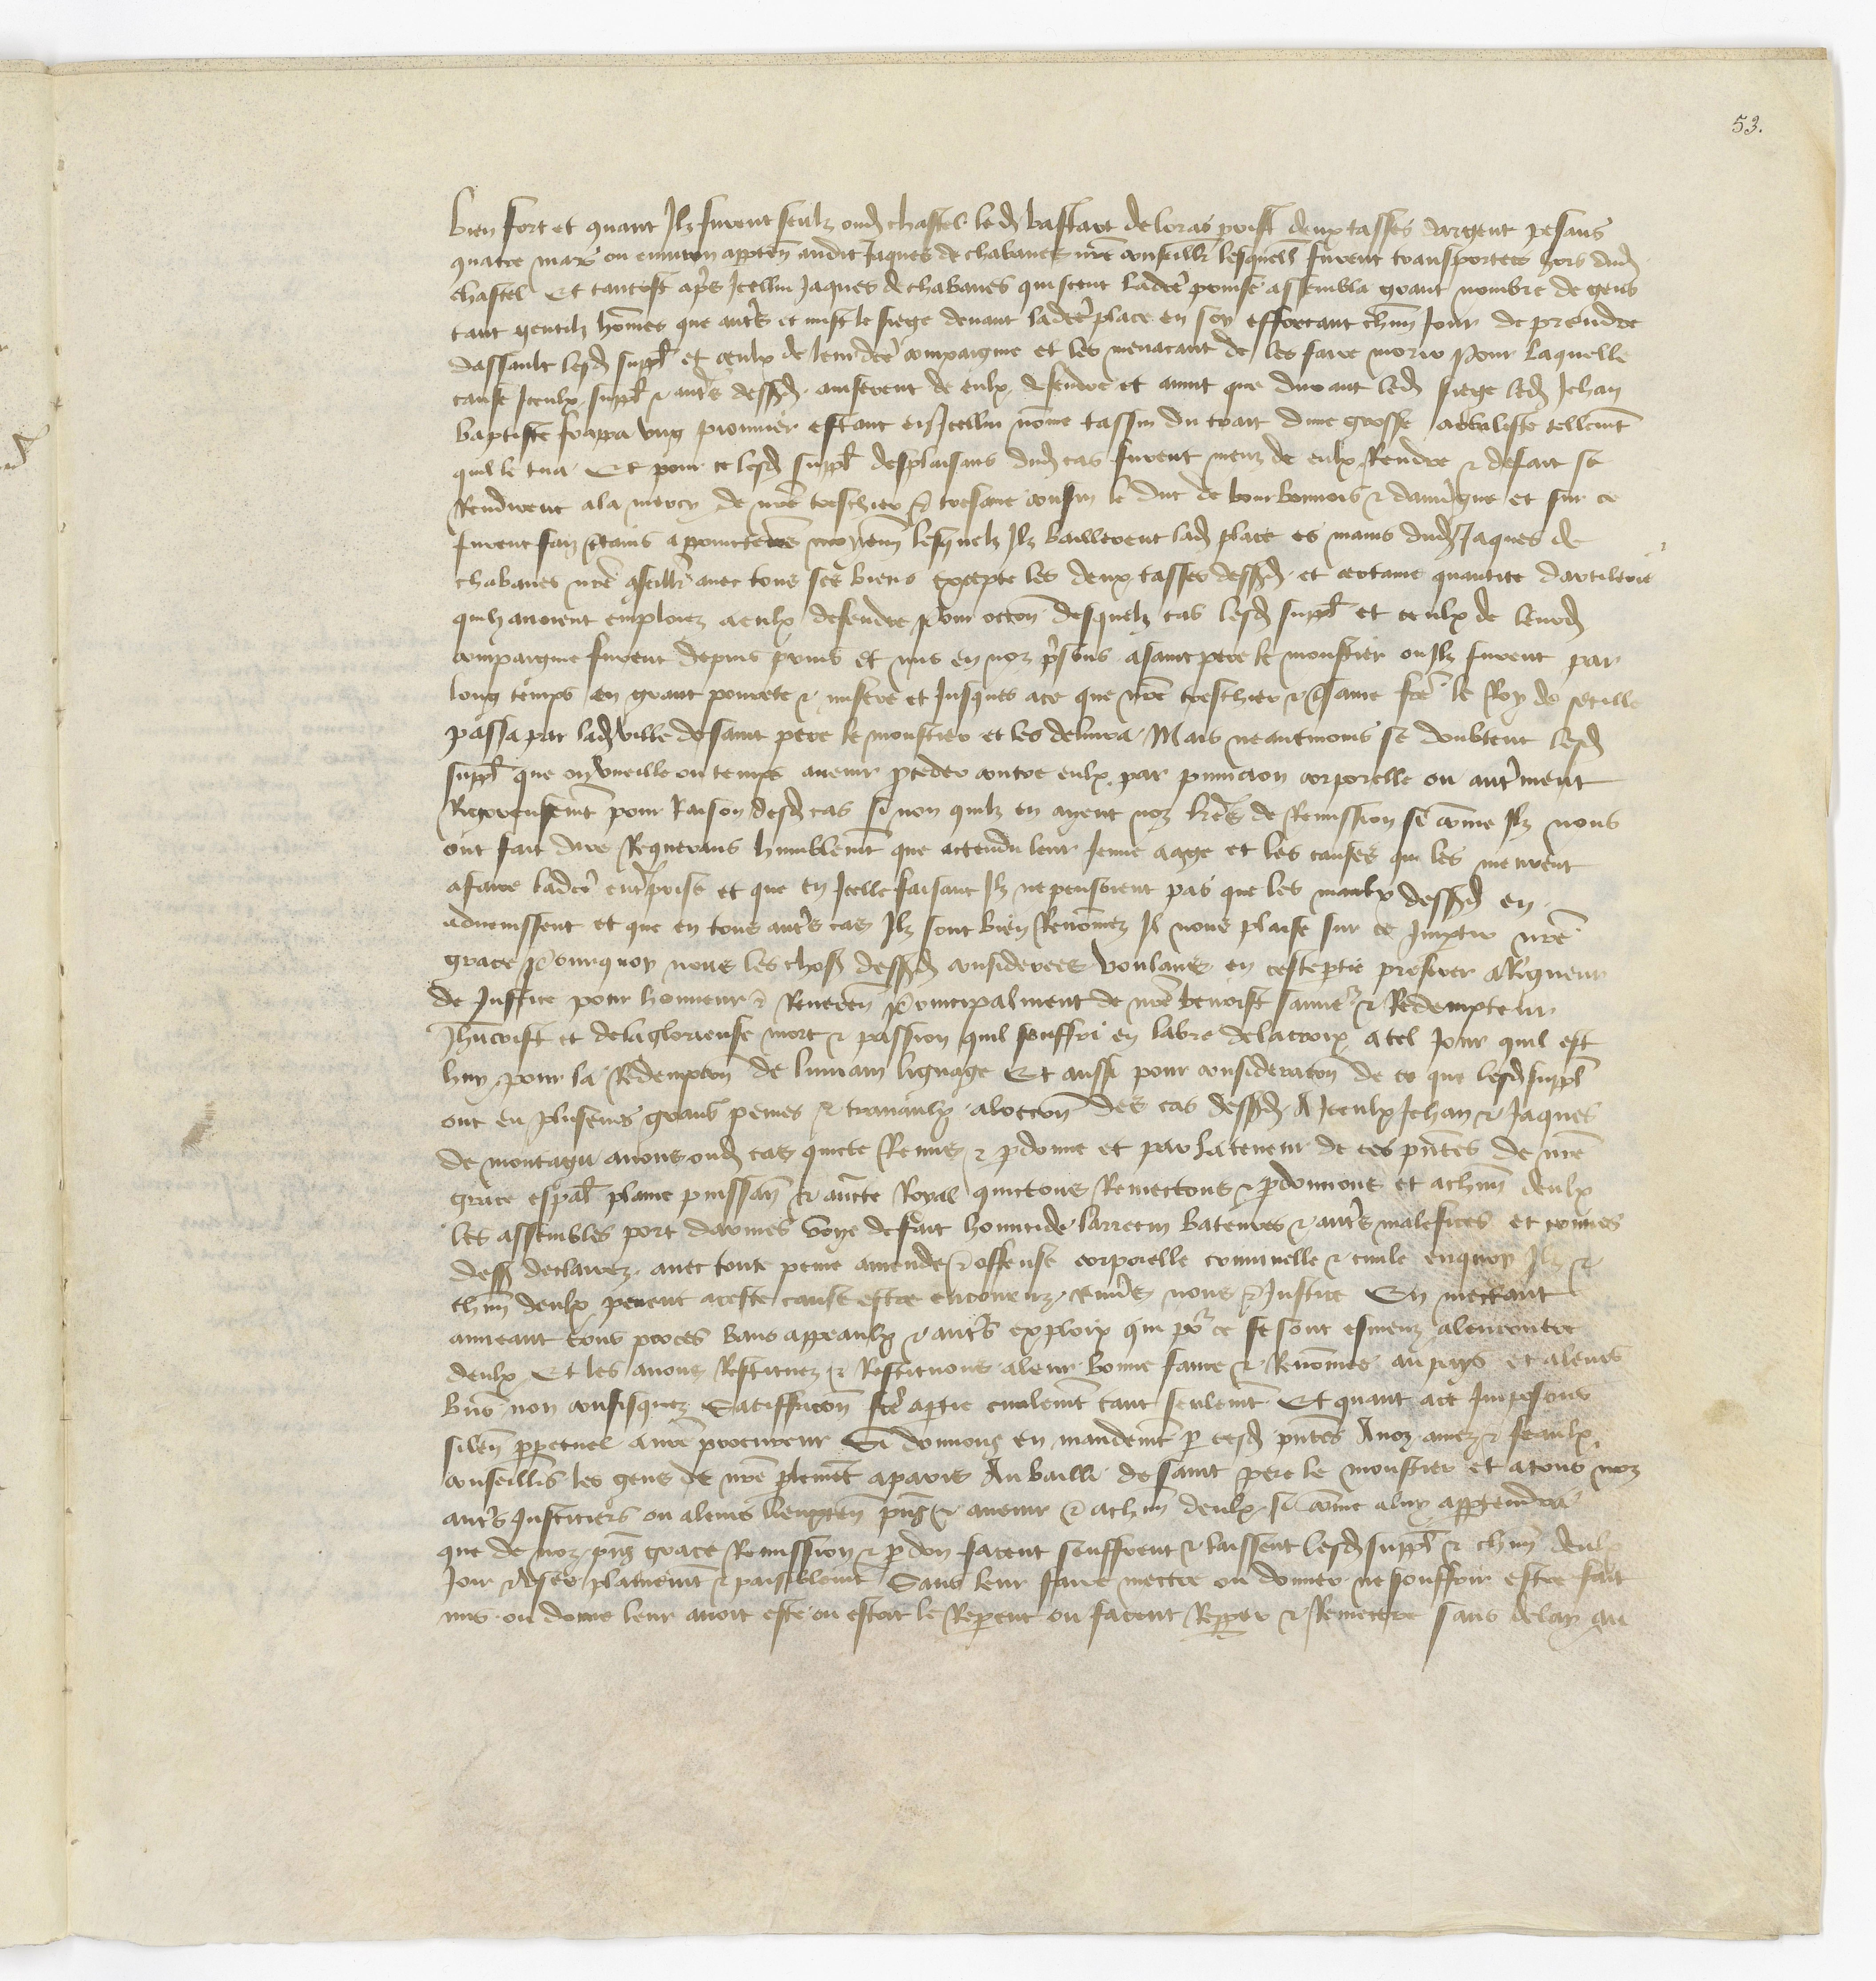 53.
bien fort et quant Ilz furent seulz oud chastel led bastart de loras prist deux tasses dargent pesans
quatre mars ou environ apparten audit Jaques de chabanes nre conseillr lesquell furent transportees hors dud
chastel Et tantost apres Icellui Jaques de chabanes qui sceut ladce prinse assembla grant nombre de gens
tant gentilz homes que autrs et mist le siege devant ladce place en soy efforcant chun Jour de prendre
dassault lesd suppl et ceulx de leur dce compaignie et les menacant de les faire morir Pour laquelle
cause Iceulx suppl & autrs dessusd auserent de eulx defendre et avint que durant led siege led Jehan
baptiste frappa ung pionnier estant en Icellui nome tassin du trait dune grosse arbaliste tellemt
quil le tua Et pour ce lesd suppl desplaisans dud cas furent meuz de eulx Rendre & de fait se
Rendirent ala mercy de nre treschier & tresame cousin le duc de bourbonnois & dauvergne et sur ce
furent faiz certains appointemens moyenn lesquelz Ilz baillerent lad place es mains dud Jaques de
chabanes nre conseillr avec tous ses biens excepte les deux tasses dessusd et certaine quantite dartilerie
quilz avoient emploiez aeulx defendre pour occon desquelz cas lesd suppl et ceulx de leurd
compaignie furent depuis prins et mis en noz prisons asaint pere le monstier ou Ilz furent par
long temps en grant povrete & misere et Jusques ace que nre treschier & tresame frere le Roy de secille
passa par lad ville de saint pere le monstier et les delivra Mais neantmoins se doubtent lesd
suppl que on vueille ou temps avenir proceder contre eulx par punicion corporelle ou autrement
Rigoreusemt pour Raison desd cas si non quilz en ayent noz lres de Remission si come Ilz nous
ont fait dire Requerans humblemt que actendu leur Jeune aage et les causes qui les meurent
afaire ladce entreprise et que en Icelle faisant Ilz ne pensoient pas que les maulx dessusd en
advenissent et que en tous autrs cas Ilz sont bien Renomez Il nous plaise sur ce Impartir nre
grace Pourquoy nous les choses dessusd considerees voulans en ceste partie preferer a Rigueur
de Justice pour honneur & Reveren Principalment de nre benoist sauver & Redempteur
Jhucrist et dela glorieuse mort & passion quil souffri en labre delacroix atel Jour quil est
huy pour la Redempcon de lumain lignage Et aussi pour consideracon de ce que lesd suppl
ont eu pluseurs grans peines & travaulx alocccon des cas dessusd A Iceulx Jehan & Jaques
de montagu avons oud cas quicte Remis & pardonne et par la teneur de ces pntes de nre
grace espal plaine puissan & aucte Royal quictons Remectons & pardonnons et achun deulx
les assembles port darmes voye de fait homicide larrecin bateures & autrs malefices et crimes
dess declairez avec toute peine amende & offense corporelle criminelle & civile enquoy Ilz &
chun deulx pevent aceste cause estre encouruz envers nous & Justice En mectant
anneant tous proces bans appeaulx & autrs exploix qui pour ce se sont esmeuz alencontre
deulx Et les avons Restituez & Restituons aleur bonne fame & Renomee au pays et aleurs
biens non confisquez Satiffacon fce apartie civilemt tant seulemt Et quant ace Imposons
silen perpetuel anre procureur Si donnons en mandemt par cesd pntes Anoz amez & feaulx
conseillrs les gens de nre parlemet aparis Au bailli de saint pere le monstier et atous noz
autrs Justiciers ou aleurs lieuxten pns & avenir & achun deulx si come aluy appartendra
que de noz pns grace Remission & pardon facent seuffrent & laissent lesd suppl & chun deulx
Joir & user plainemt & paisiblemt Sans leur faire mectre ou donner ne souffrir estre fait
mis ou donne leur avoit este ou estoit le Reparent ou facent Reparer & Remectre sans delay au